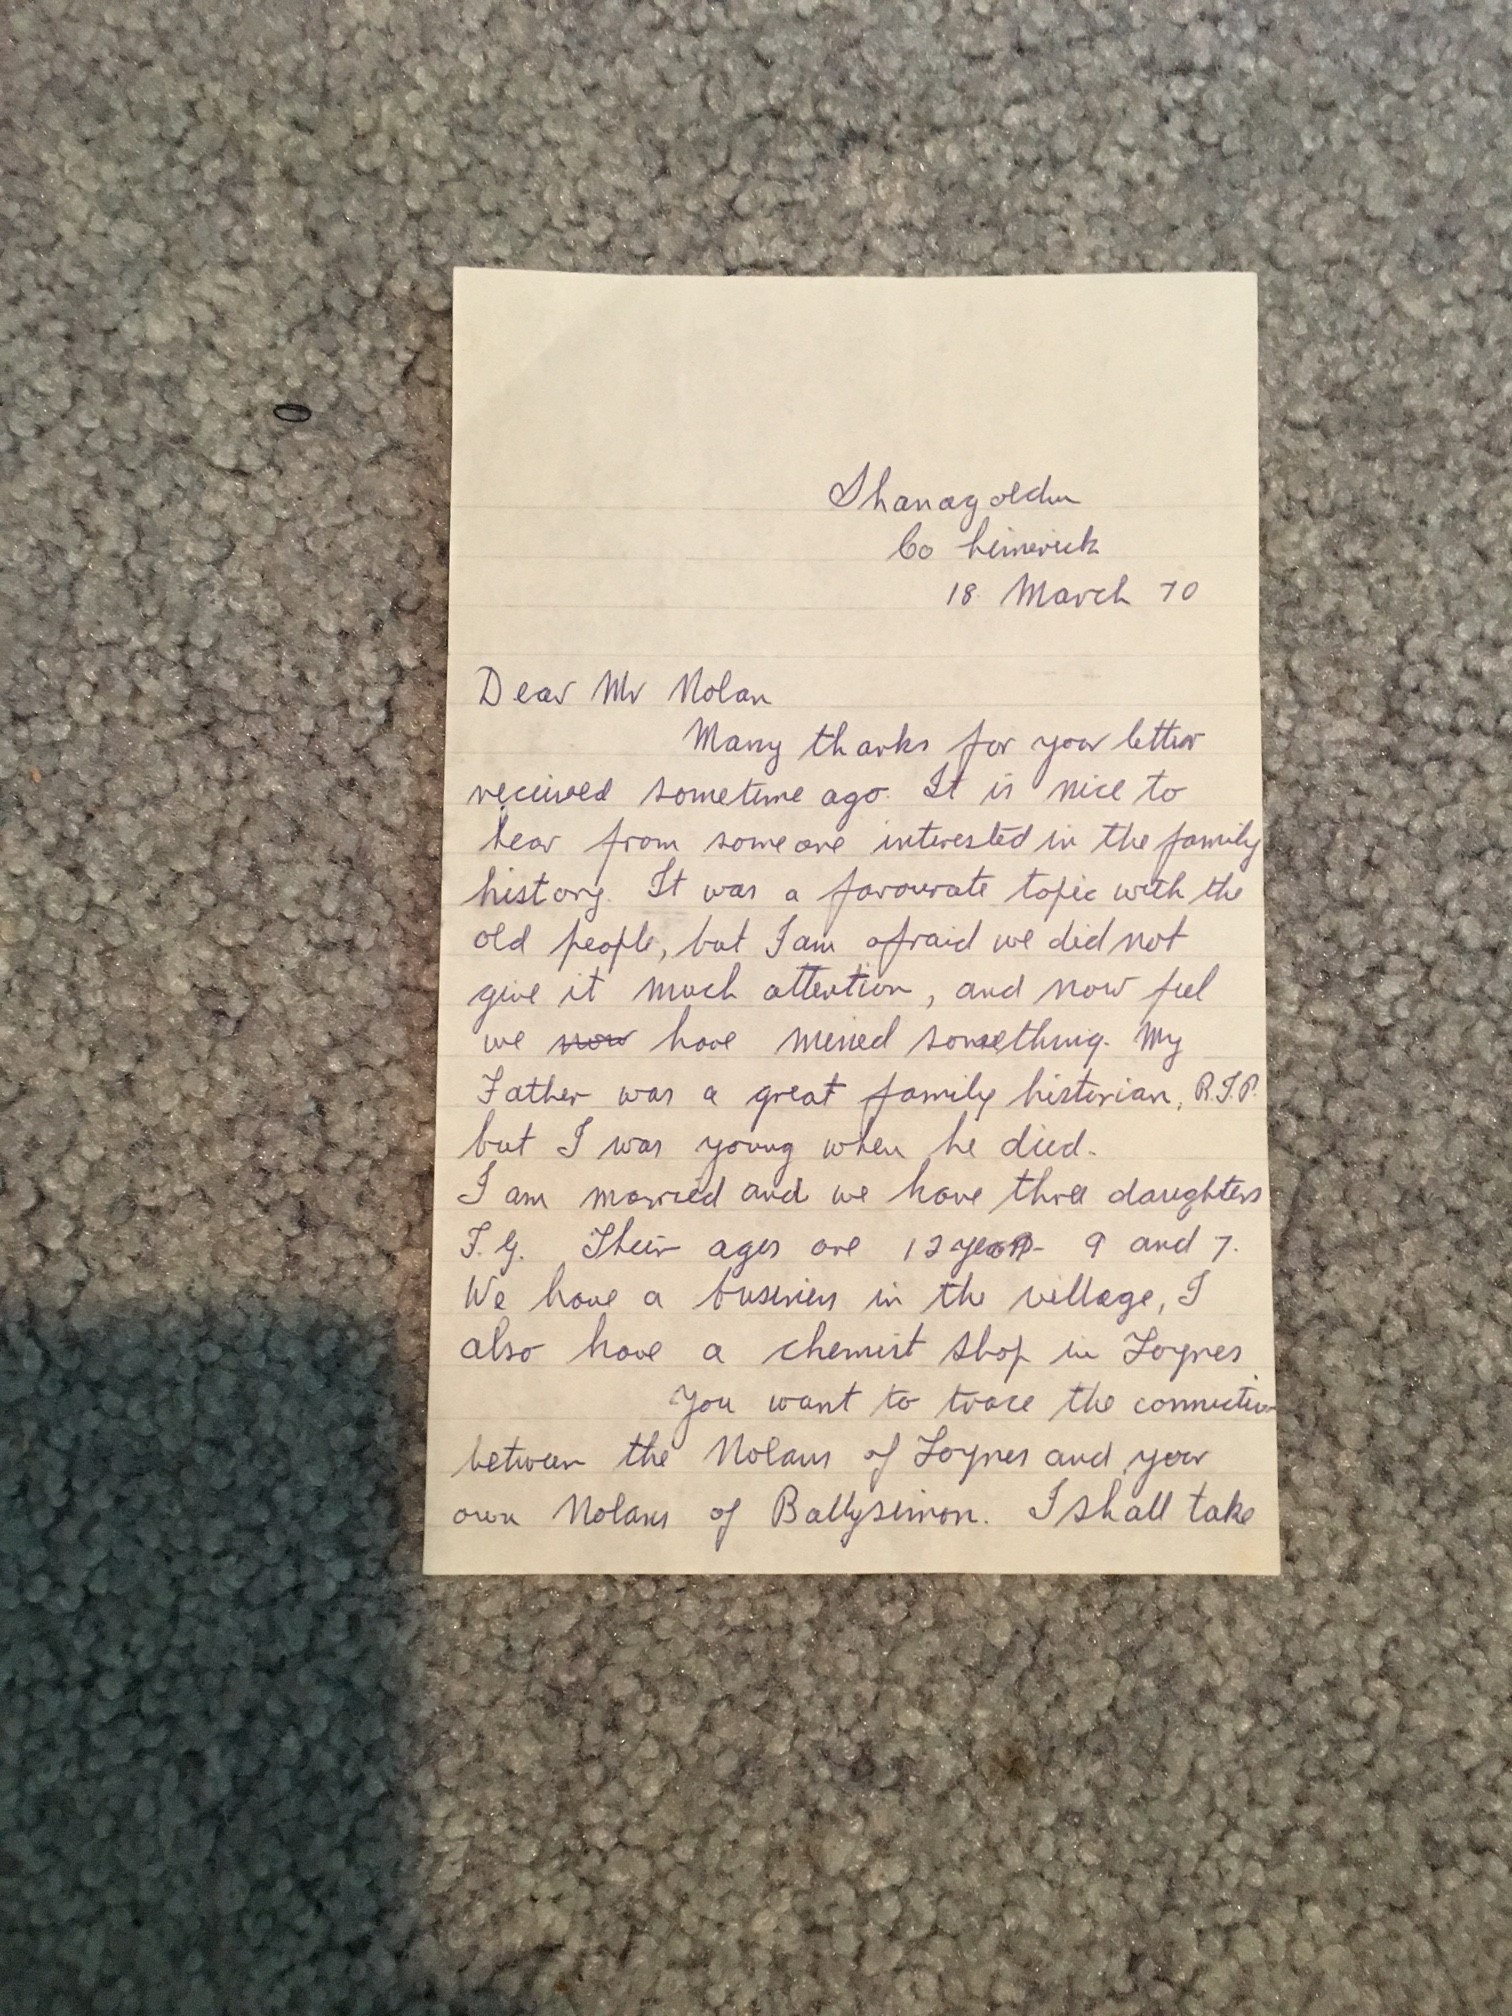 Shanagolden
Co Limerick
18 March 70
Dear Mr Nolan
Many thanks for your letter
received sometime ago. It is nice to
hear from someone interested in the family
history. It was a favourate topic with the
old people, but I am afraid we did not
give it much attention, and now feel
we now have missed something. My
Father was a great family historian, R.I.P.
but I was young when he died.
I am married and we have three daughters
T.G. Their ages are 12 years 9 and 7.
We have a business in the village, I
also have a chemist shop in Foynes
You want to trace the connection
between the Nolans of Foynes and your
own Nolans of Ballysimon. I shall take